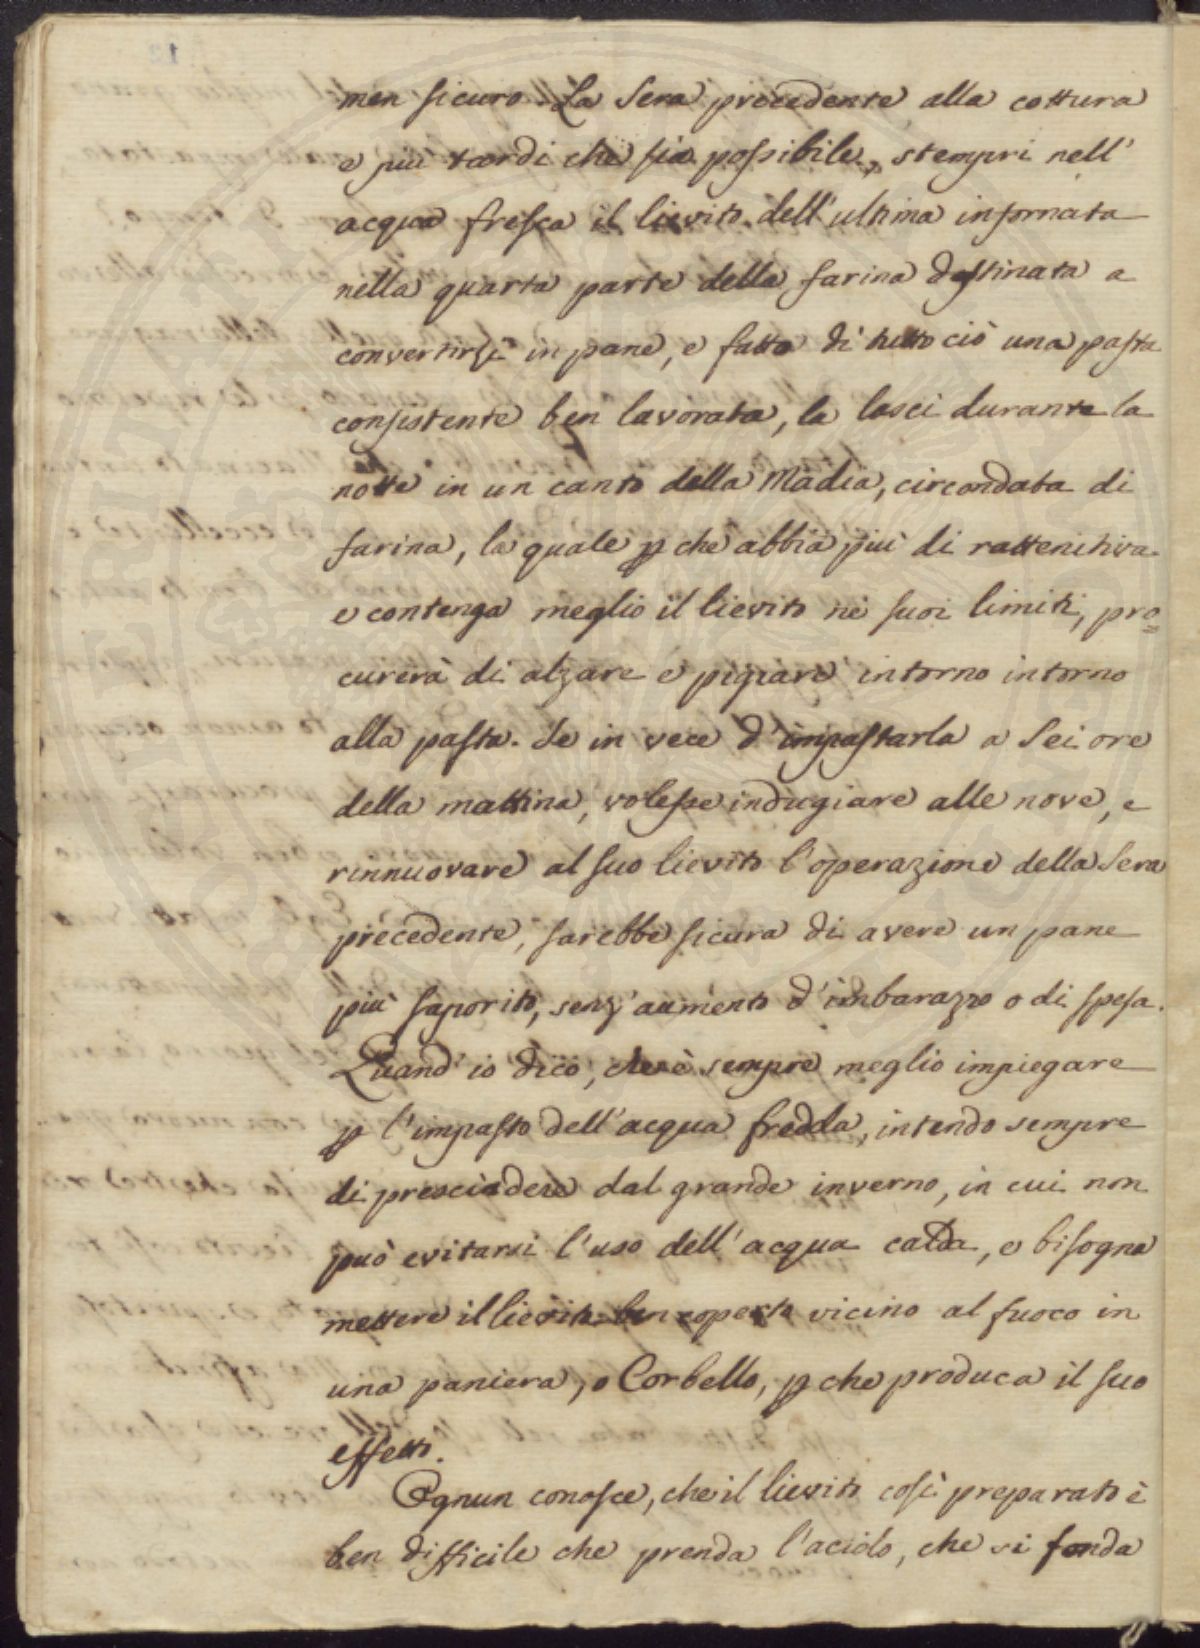 men sicuro. La sera precedente alla cottura
e più tardi che sia possibile, stempri nell'
acqua fresca il lievito dell'ultima infornata
nella quarta parte della farina destinata a
convertirsi in pane, e fatto di tutto ciò una pasta
consistente ben lavorata, la lasci durante la
notte in un canto della Madia, circondata di
farina, la quale p che abbia più di rattenitiva
e contenga meglio il lievito nè suoi limiti, pro=
curerà di alzare e pigiare intorno intorno
alla pasta. Se in vece d'impastarla a sei ore
della mattina, volesse indugiare alle nove, e
rinnuovare al suo lievito l'operazione della sera
precedente, sarebbe sicura di avere un pane
più saporito, senz'aumento d'imbarazzo o di spesa.
Quand'io dico, che è sempre meglio impiegare
p l'impasto dell'acqua fredda, intendo sempre
di prescindere dal grande inverno, in cui non
può evitarsi l'uso dell'acqua calda, e bisogna
mettere il lievito ben coperto vicino al fuoco in
una paniera, o Corbello, p che produca il suo
effetto.
Ognun conosce, che il lievito così preparato è
ben difficile che prenda l'acido, che si fonda